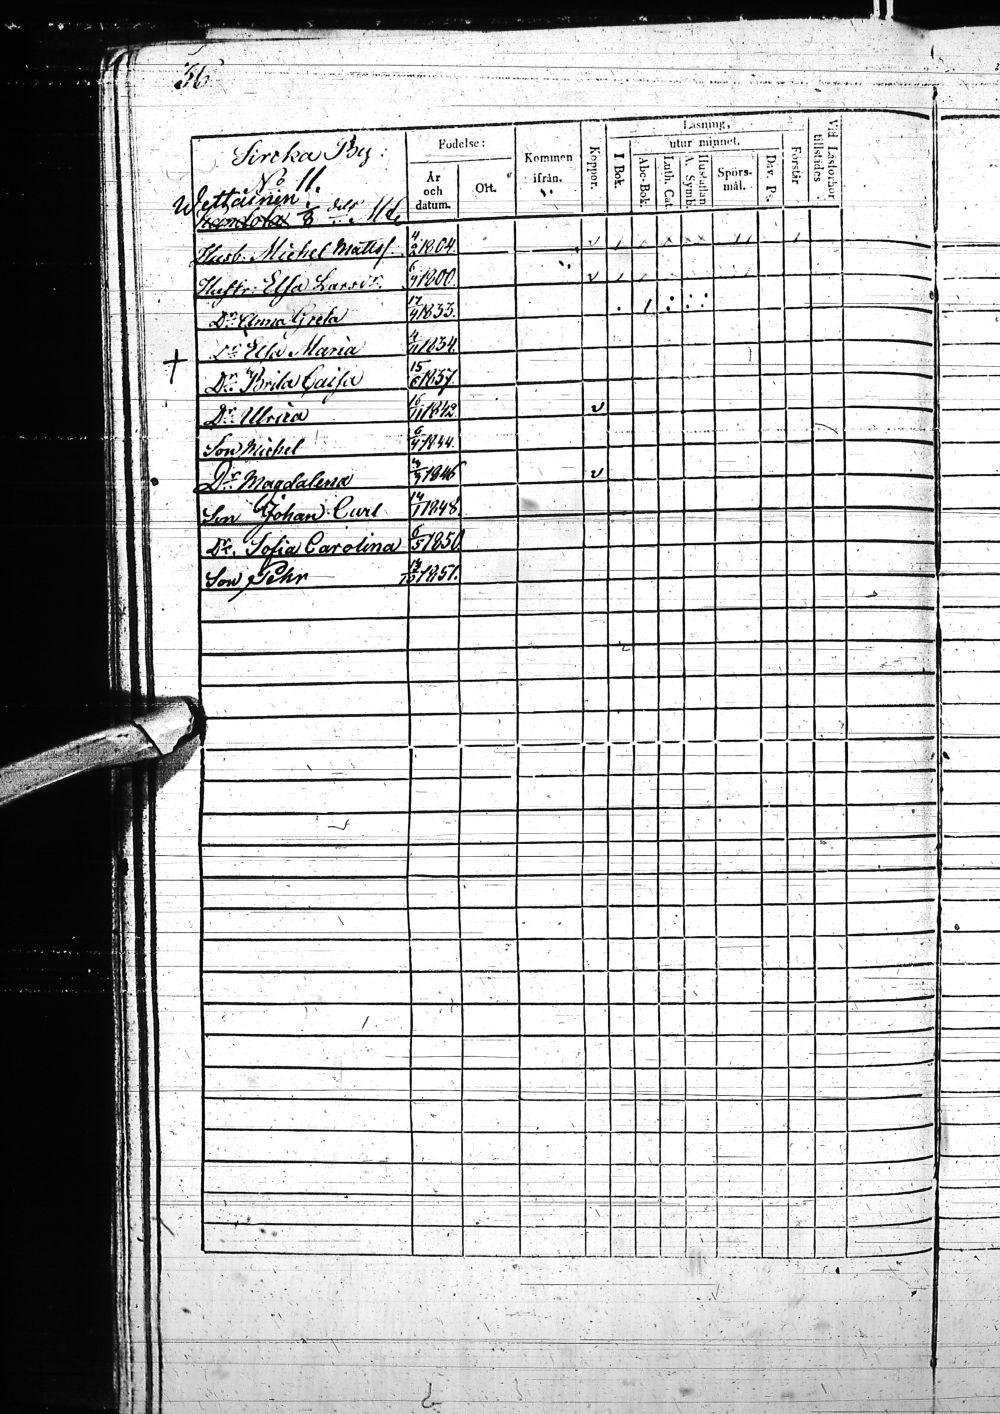 36
Sircka By:
No 11.
Wettäinen.
Födelse:
År och datum.
Ort.
Kommen ifrån.
Koppor.
Läsning,
utur minnet.
I Bok.
Abc-Bok
Luth. Cat.
Hustaflan A. Symb.
Spörs-mål.
Dav. Ps.
Förstår
Vid Läsförhör tillstädes
Husb. Michel Mattss. 4/2 1804.
Hustr. Elsa Larsdr. 1800.
Dr. Anna Greta 17/4 1833.
Dr. Elsa Maria 4/11 1834.
Dr. Brita Caisa 15/6 1837.
Dr. Ulrica 16/11 1842.
Son Michel 6/4 1844.
Dr. Magdalena 1846
Son Johan Carl 14/1 1848.
Dr. Sofia Carolina 6/5 1850.
Son Pehr 13/10 1851.